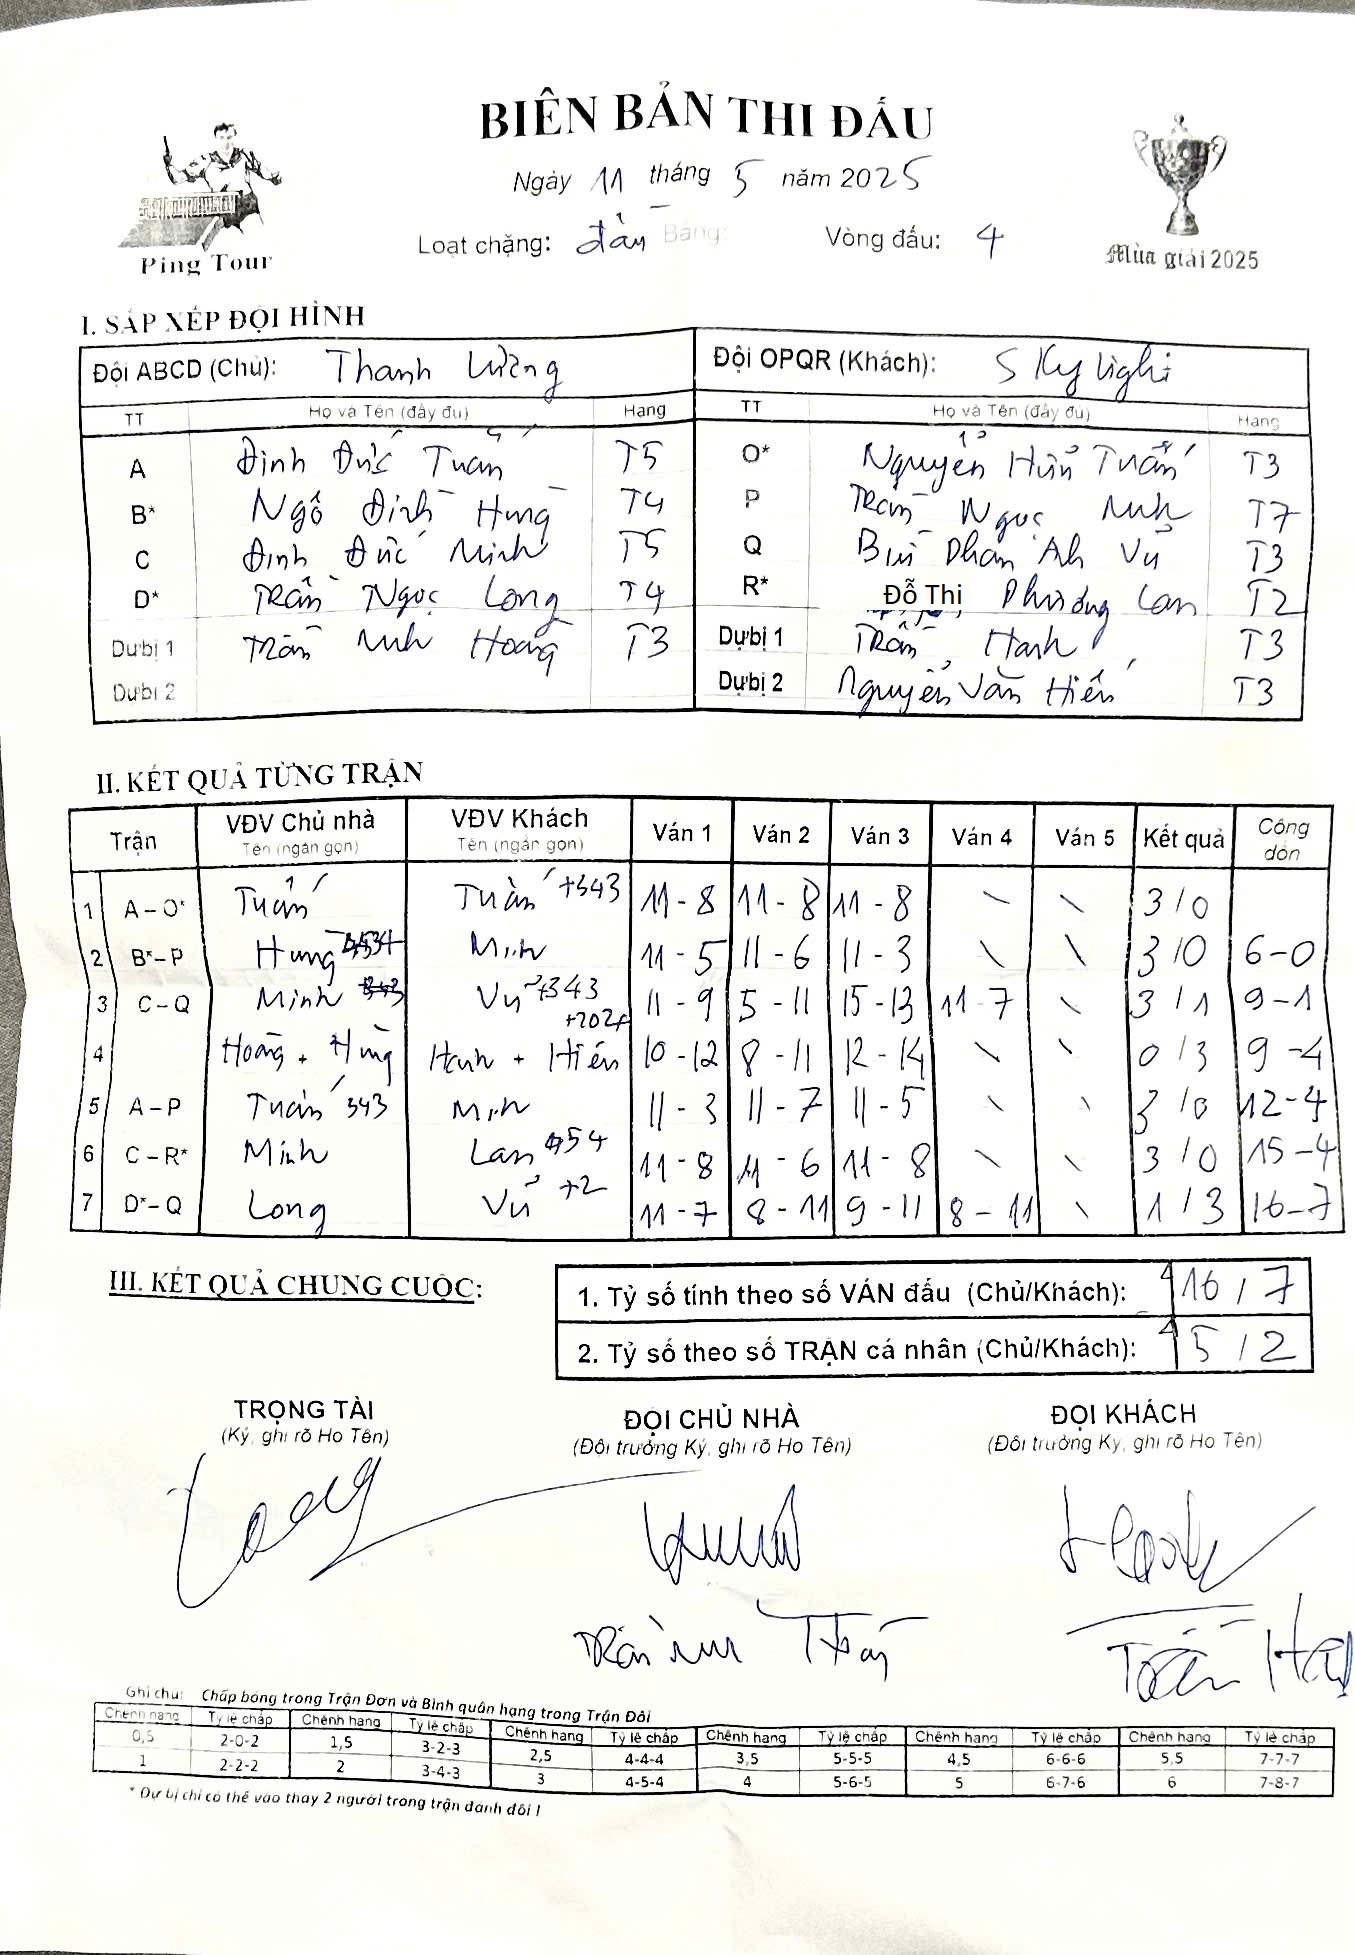 BIÊN BẢN THI ĐẤU
Ngày 11 tháng 5 năm 2025
Loạt chặng: đàn Bảng: Vòng đấu: 4
Ping Tour
Mùa giải 2025
I. SẮP XẾP ĐỘI HÌNH
Đội ABCD (Chủ): Thanh Lương Đội OPQR (Khách): Skylight
TT Họ và Tên (đầy đủ) Hạng TT Họ và Tên (đầy đủ) Hạng
A Đinh Đức Tuấn T5 O* Nguyễn Hữu Tuấn T3
B* Ngô Đình Hưng T4 P Trần Ngọc Minh T7
C Đinh Đức Minh T5 Q Bùi Phan Anh Vũ T3
D* Trần Ngọc Long T4 R* Đỗ Thị Phương Lan T2
Dự bị 1 Trần Anh Hoàng T3 Dự bị 1 Trần Hạnh T3
Dự bị 2 Dự bị 2 Nguyễn Văn Hiến T3
II. KẾT QUẢ TỪNG TRẬN
Trận VĐV Chủ nhà Tên (ngắn gọn) VĐV Khách Tên (ngắn gọn) Ván 1 Ván 2 Ván 3 Ván 4 Ván 5 Kết quả Cộng dồn
1 A – O* Tuấn Tuấn +343 11 - 8 11 - 8 11 - 8 \ \ 3 / 0
2 B* – P Hưng Minh 11 - 5 11 - 6 11 - 3 \ \ 3 / 0 6 – 0
3 C – Q Minh Vũ +343 +202 11 - 9 5 - 11 15 - 13 11 - 7 \ 3 / 1 9 – 1
4 Hoàng + Hùng Hạnh + Hiến 10 - 12 8 - 11 12 - 14 \ \ 0 / 3 9 – 4
5 A – P Tuấn 343 Minh 11 - 3 11 - 7 11 - 5 \ \ 3 / 0 12 – 4
6 C – R* Minh Lan 454 11 - 8 11 - 6 11 - 8 \ \ 3 / 0 15 – 4
7 D* – Q Long Vũ +2 11 - 7 8 - 11 9 - 11 8 - 11 \ 1 / 3 16 – 7
III. KẾT QUẢ CHUNG CUỘC:
1. Tỷ số tính theo số VÁN đấu (Chủ/Khách): 16 / 7
2. Tỷ số theo số TRẬN cá nhân (Chủ/Khách): 5 / 2
TRỌNG TÀI ĐỘI CHỦ NHÀ ĐỘI KHÁCH
(Ký, ghi rõ Họ Tên) (Đội trưởng Ký, ghi rõ Họ Tên) (Đội trưởng Ký, ghi rõ Họ Tên)
Ghi chú: Chấp bóng trong Trận Đơn và Bình quân hạng trong Trận Đôi
Chênh hạng Tỷ lệ chấp Chênh hạng Tỷ lệ chấp Chênh hạng Tỷ lệ chấp Chênh hạng Tỷ lệ chấp Chênh hạng Tỷ lệ chấp Chênh hạng Tỷ lệ chấp
0,5 2-0-2 1,5 3-2-3 2,5 4-4-4 3,5 5-5-5 4,5 6-6-6 5,5 7-7-7
1 2-2-2 2 3-4-3 3 4-5-4 4 5-6-5 5 6-7-6 6 7-8-7
* Dự bị chỉ có thể vào thay 2 người trong trận đánh đôi !